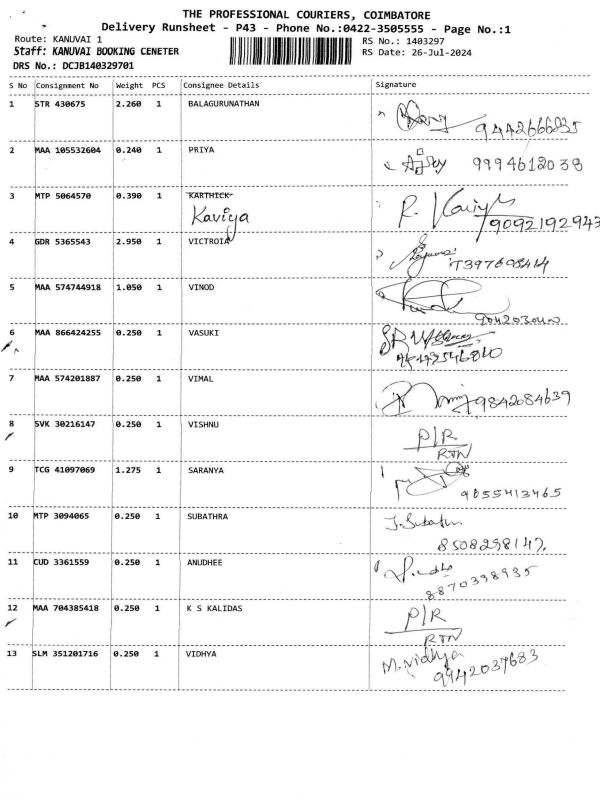 THE PROFESSIONAL COURIERS, COIMBATORE
Delivery Runsheet - P43 - Phone No.:0422-3505555 - Page No.:1
Route: KANUVAI 1 RS No.: 1403297
Staff: KANUVAI BOOKING CENETER RS Date: 26-Jul-2024
DRS No.: DCJB140329701
S No Consignment No Weight PCS Consignee Details Signature
1 STR 430675 2.260 1 BALAGURUNATHAN
9442666835
2 MAA 105532604 0.240 1 PRIYA 9994612038
3 MTP 5064570 0.390 1 KARTHICK R. Kaviya
Kaviya 9092192943
4 GDR 5365543 2.950 1 VICTROIA
7397698414
5 MAA 574744918 1.050 1 VINOD
6 MAA 866424255 0.250 1 VASUKI
7 MAA 574201887 0.250 1 VIMAL 9842084639
8 SVK 30216147 0.250 1 VISHNU P/R
RTN
9 TCG 41097069 1.275 1 SARANYA
9055413465
10 MTP 3094065 0.250 1 SUBATHRA J. Subathra
8508298147
11 CUD 3361559 0.250 1 ANUDHEE
8870398935
12 MAA 704385418 0.250 1 K S KALIDAS P/R
RTN
13 SLM 351201716 0.250 1 VIDHYA M. Vidhya
9942037683